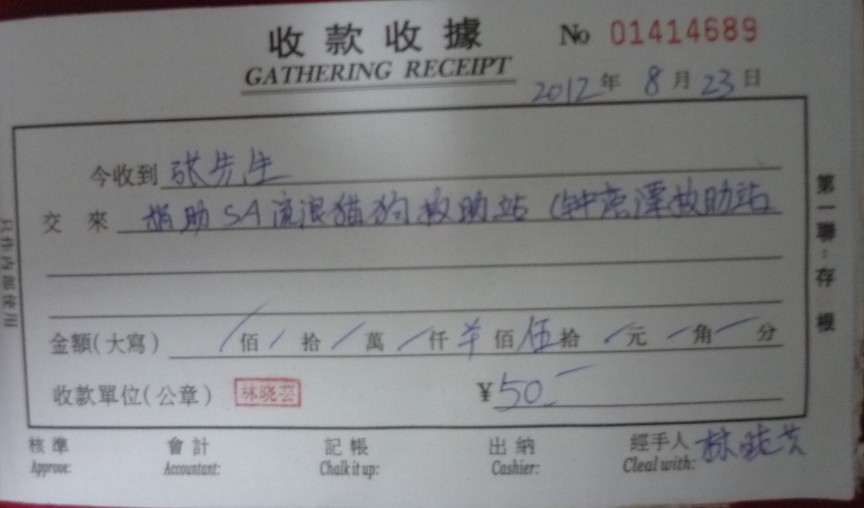 收款收據
No 01414689
GATHERING RECEIPT
2012年 8月23日
今收到 张先生
交來 捐助SA流浪猫狗救助站(钟意潭救助站
金額(大寫) / 佰 / 拾 / 萬 / 仟 羊 佰 伍 拾 / 元 / 角 / 分
收款單位(公章) 林晓芸 ¥50.-
核準 會計 記帳 出納 經手人 林晓芸
Approve: Accountant: Chalk it up: Cashier: Cleal with:
第一聯:存根
只作內部使用